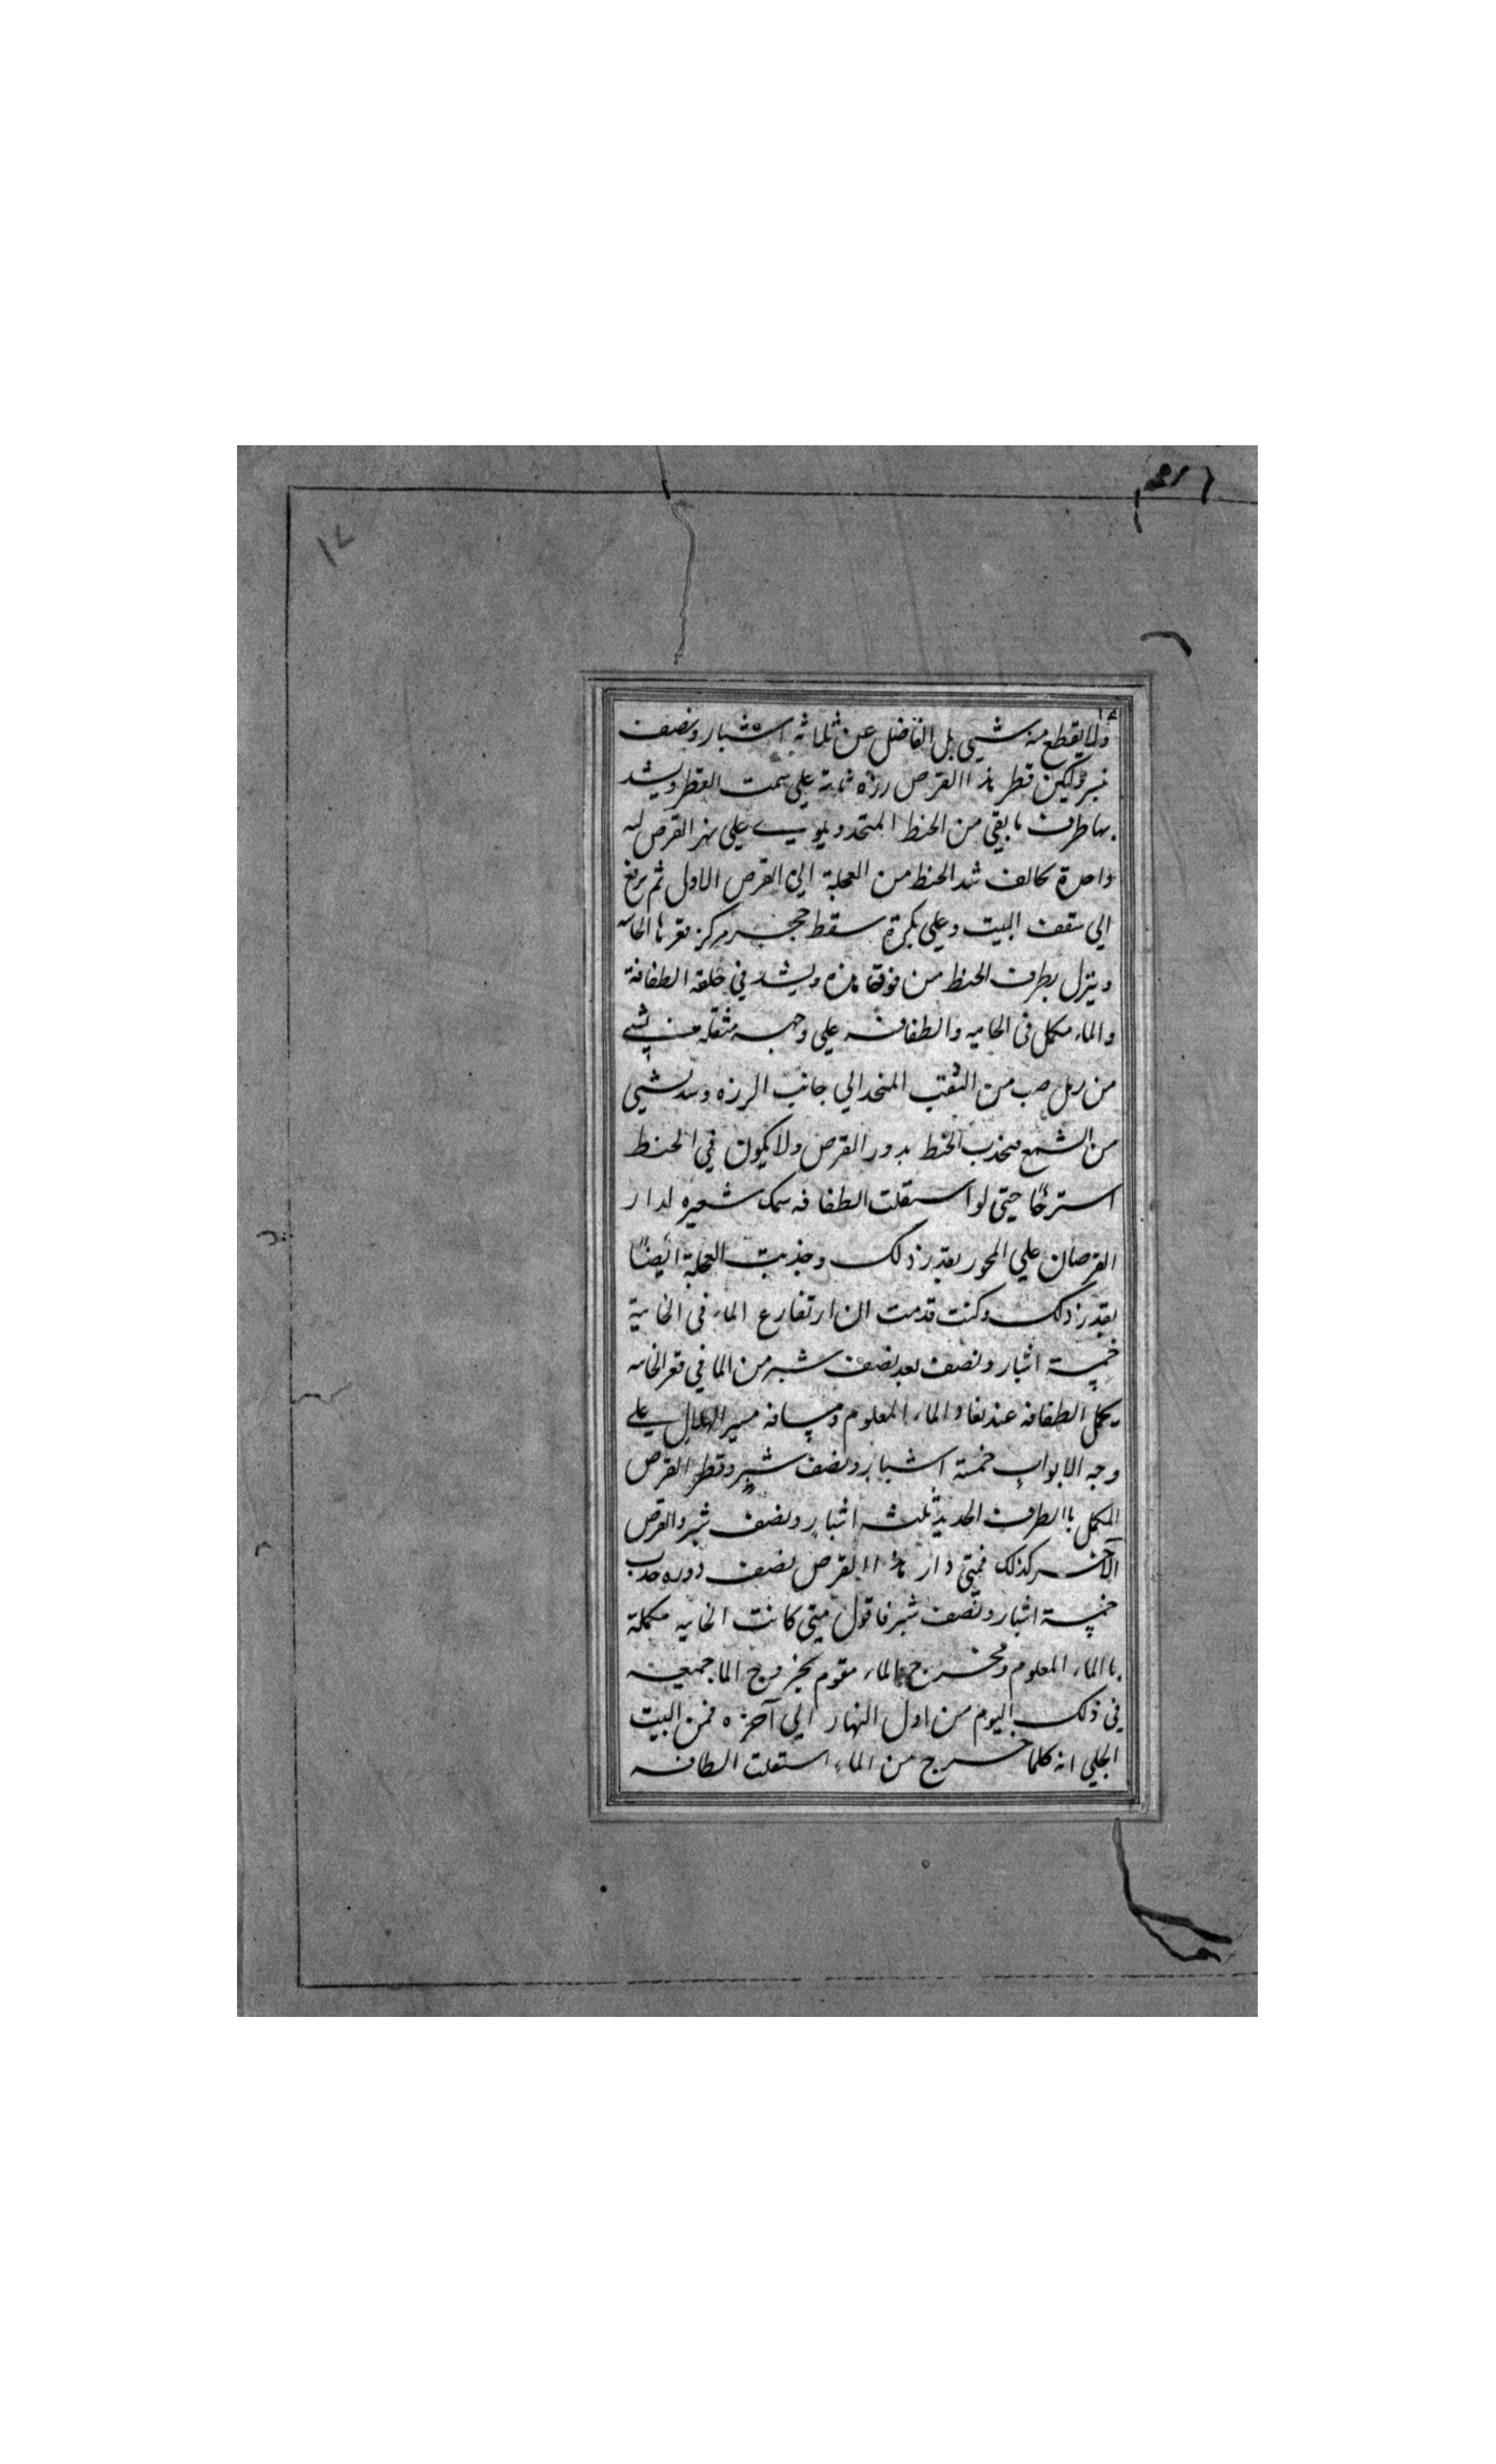 ١٧
١٧
ولا يقطع منه شيي بل الفاضل عن ثلاثة اشبار ونصف
شبر وليكن قطر هذا القرص رزه ثابتة علي سمت القطر ويشد
بها طرف ما بقي من الخيط المتحد ويلوي علي نهر القرص ليه
واحدة كالف شد الخيط من العجلة الي القرص الاول ثم يرفع
الي سقف البيت وعلي بكرة سقط حجر مركز قعرها الخابيه
وينزل بطرف الخيط من فوقها هذه ويشد في حلقة الطفافة
والماء مكمل في الخابيه والطفافه علي وجهه مثقله من بشيي
من رمل صب من الثقب المتخذ الي جانب الرزه وسد بشيي
من الشمع فيجذب الخيط بدور القرص ولا يكون في الخيط
استرخًا حتي لو استقلت الطفافه سمك شعيره لدار
القرصان علي المحور بقدر ذلك وجذبت العجلة ايضًا
بقدر ذلك وكنت قدمت ان ارتفاع الماء في الخابية
خمسة اشبار ونصف بعد نصف شبر من الما في قعر الخابيه
يكمل الطفافه عند نفاد الماء المعلوم ومسافة مسير الهلال علي
وجه الابواب خمسة اشبار ونصف شبر وقطر القرص
المكمل باالطرف الحديد ثلثه اشبار ونصف شبر والقرص
الآخر كذلك فمتي دار هذا االقرص نصف دوره جذب
خمسة اشبار ونصف شبر فاقول متي كانت الخابيه مكملة
باالماء المعلوم ومخرج الماء مقوم بخروج الما جميعه
في ذلك اليوم من اول النهار الي آخره فمن البيت
الجلي انه كلما خرج من الماء استقلت الطافه